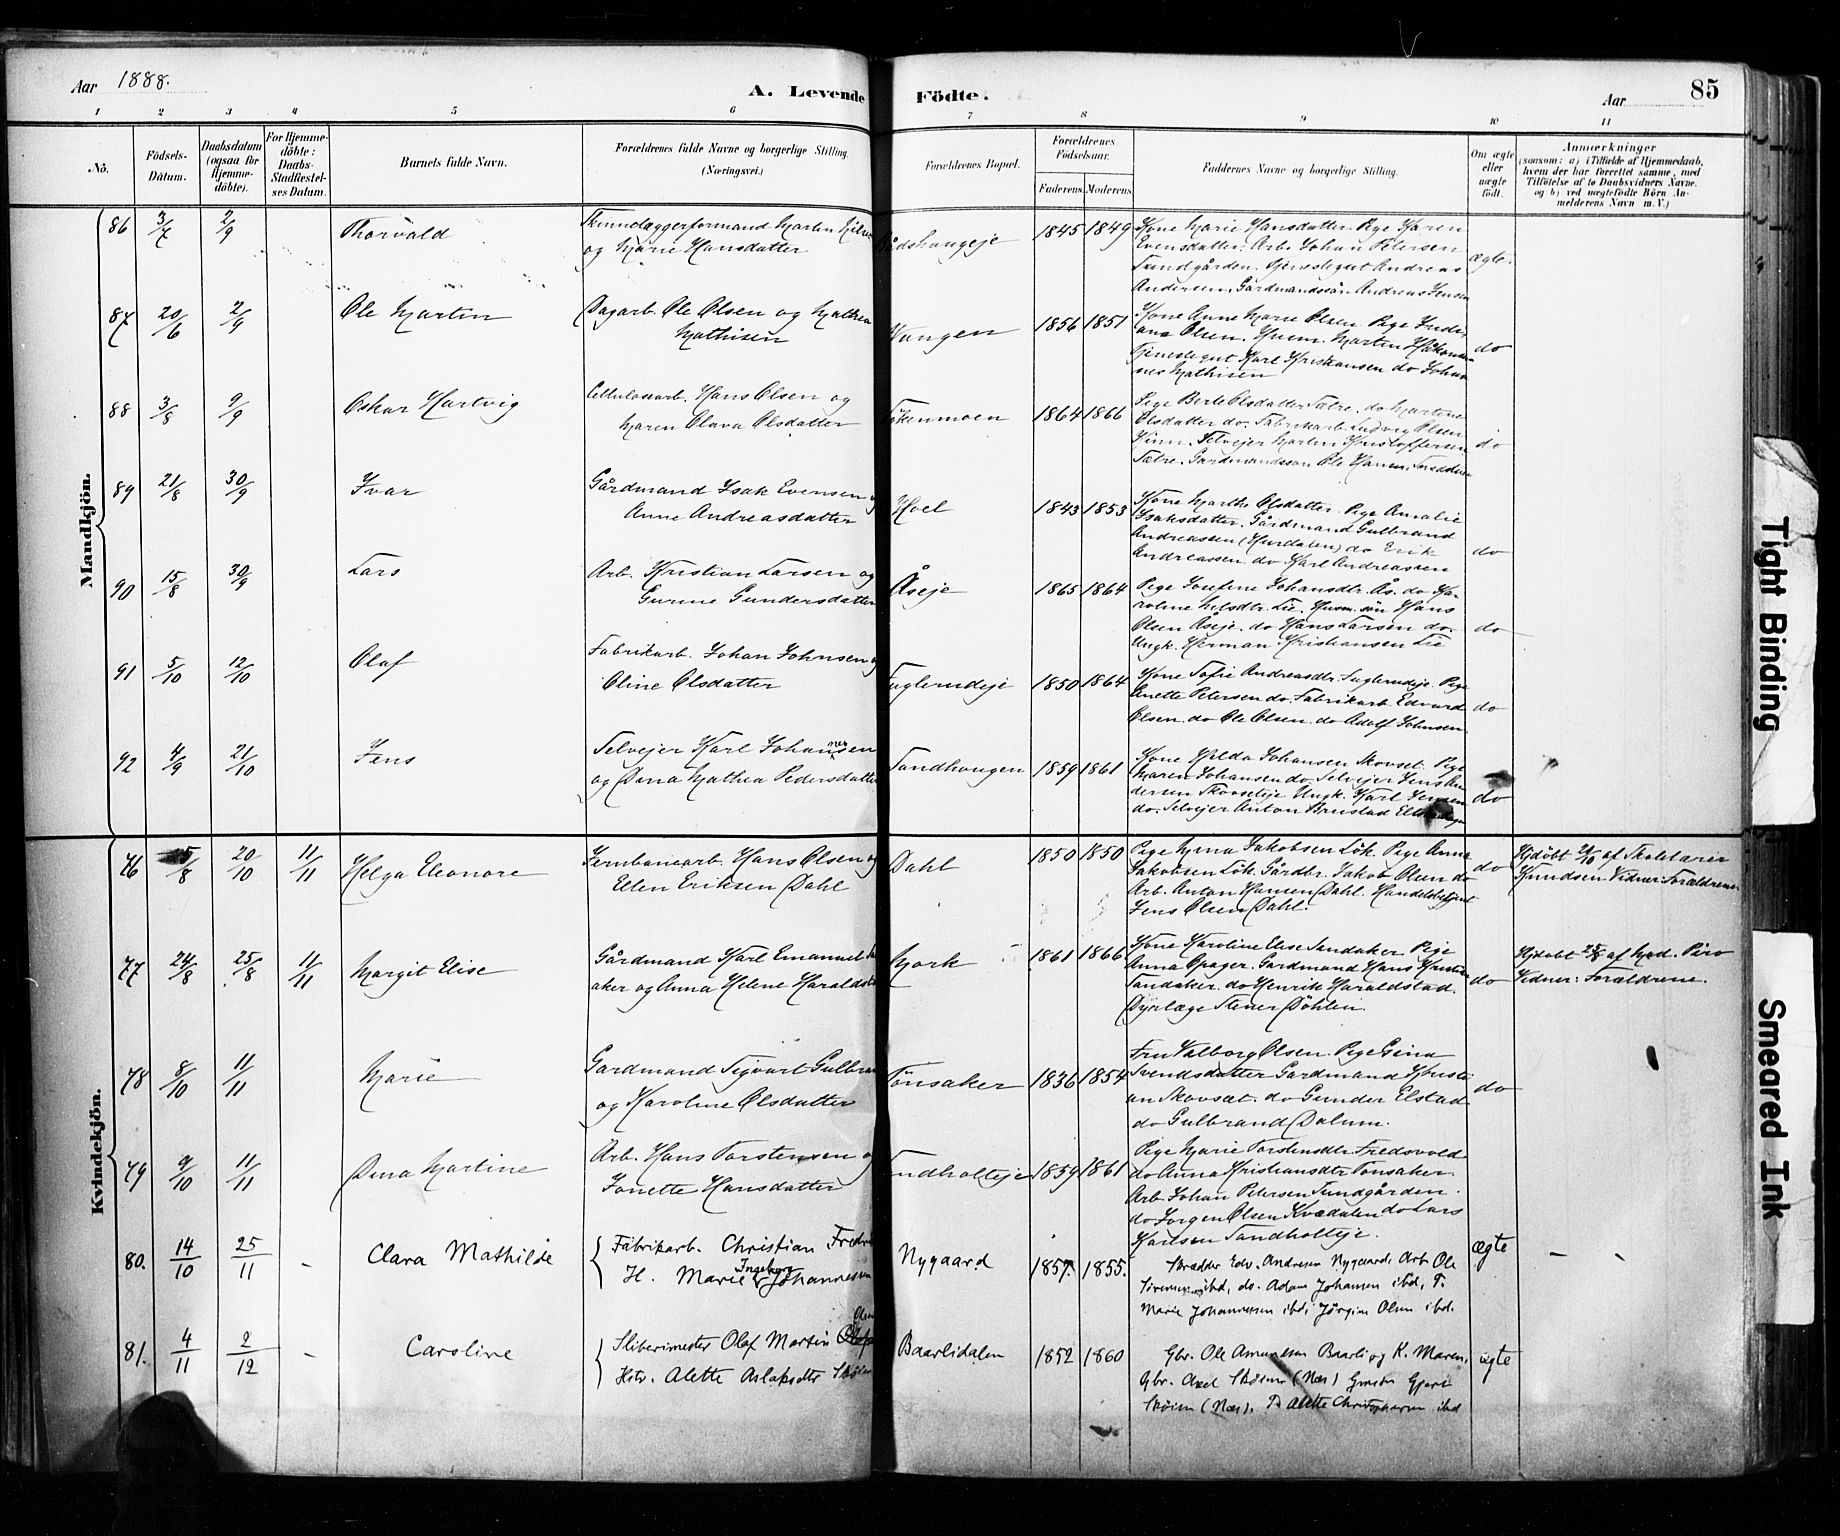 Aar 1888.
A. Levende Födte.
Aar
85
1 2 3 4 5 6 7 8 9 10 11
No.
Födsels-Dátum.
Daabsdatum (ogsaa for Hjemme-døbte).
For Hjemme-döbte: Daabs-Stadfæstel-ses Datum.
Barnets fulde Navn.
Forældrenes fulde Navne og borgerlige Stilling. (Næringsvei.)
Forældrenes Bopæl.
Forældrenes Födselsaar.
Faderens.
Moderens.
Faddernes Navne og borgerlige Stilling.
Om ægte eller uægte født.
Anmærkninger
(saasom: a) i Tilfælde af Hjemmedaab,
hvem der har forrettet samme, med
Tilføielse af to Daabsvidners Navne.
og b) ved uægtefødte Børn An-
melderens Navn m. V.)
Mandkjön.
86 3/7 2/9 Thorvald
Skinnelæggerformand Martin
og Marie Hansdatter
1845 1849
Kone Marie Hansdatter. Pige Karen
Evensdatter. Arb. Johan Petersen
Sundgården. Tjenestegut Andreas
Andersen. Gårdmandssön Andreas Jensen
ægte.
87 20/6 2/9 Ole Martin
Dagarb. Ole Olsen og Mathea
Mathisen
Vangen
1856 1851
Kone Anne Marie Olsen. Pige
Olsen. Husm. Martin
Tjenestegut Karl Kristiansen do Johan
nes Mathisen
do
88 3/8 9/9 Oskar Hartvig
Cellulosearb. Hans Olsen og
Maren Olava Olsdatter
1864 1866
Pige Berte Olsdatter Sætre. do Martine
Olsdatter do. Fabrikarb. Ludvig Olsen
Selvejer Martin Kristoffersen
Sætre. Gardmandssön Ole Hansen
do
89 21/8 30/9 Ivar
Gårdmand Isak Evensen og
Anne Andreasdatter
Hoel
1843 1853
Kone Marthe Olsdatter. Pige Amalie
Isaksdatter. Gårdmand Gulbrand
Andreassen (Hurdalen) do Erik
Andreassen. do Karl Andreassen
do
90 15/8 30/9 Lars
Arb. Kristian Larsen og
Gurine Gundersdatter
Åseje
1865 1864
Pige Josefine Johansdtr. Ås. do Ka-
roline Nilsdtr. Lie. Husm. sön Hans
Olsen Åseje. do Hans Larsen do.
Ungk. Herman Kristiansen Lie
do
91 5/10 12/10 Olaf
Fabrikarb. Johan Johnsen og
Oline Olsdatter
Fuglerudeje
1850 1864
Kone Sofie Andreasdtr. Fuglerudeje. Pige
Anette Petersen do. Fabrikarb. Edvard
Olsen. do Ole Olsen. do Adolf Johnsen.
do
92 4/9 21/10 Jens
Selvejer Karl Johannesen
og Dina Mathea Pedersdatter
Sandhaugen
1859 1861
Kone Hilda Johansen Skovset. Pige
Maren Johansen do. Selvejer Jens An
dersen Skovseteje. Ungk. Karl Jensen
do. Selvejer Anton Brustad
do
Kvindekjön.
76 5/8 20/10 11/11 Helga Eleonore
Jernbanearb. Hans Olsen og
Ellen Eriksen Dahl
Dahl
1850 1850
Pige Mina Jakobsen Lök. Pige Anna
Jakobsen Lök. Gårdbr. Jakob Olsen do
Arb. Anton Hansen Dahl. Handelsbetjent
Jens Olsen Dahl.
do
Hjdöbt 20/10 af Skolelærer
Knudsen Vidner: Forældrene
77 24/8 25/8 11/11 Margit Elise
Gårdmand Karl Emanuel
aker og Anna Helene Haraldstad
Mork
1861 1866
Kone Karoline Elise Sandaker. Pige
Anna Opager. Gardmand Hans Kristian
Sandaker. do Henrik Haraldstad.
Dyrlæge Stener Döhlin.
do
Hjdöbt 25/8 af Mad. Piro
Vidner: Forældrene.
78 8/10 11/11 Marie
Gardmand Sigvart Gulbran
og Karoline Olsdatter
Tönsaker
1836 1854
Fru Valborg Olsen. Pige Gina
Svendsdatter Gardmand Kristi
an Skovset. do Gunder Elstad
do Gulbrand Dalum.
do
79 9/10 11/11 Dina Martine
Arb. Hans Torstensen og
Jonette Hansdatter
Sandholteje
1859 1861
Pige Marie Torstensdtr Fredsvold
do Anna Kristiansdtr Tönsaker.
Arb. Johan Petersen Sundgården.
do Jorgen Olsen Kvædalen do Lars
Karlsen Sandholteje.
80. 14/10 25/11 - Clara Mathilde
Fabrikarb. Christian Fredr
H. Marie Ingeborg Johannessen
Nygaard
1857. 1855.
Skrædder Edv. Andresen Nygaard, Arb. Ole
Sörensen ibd, do. Adam Johansen ibd, P.
Marie Johannessen ibd, Jörgine Olsen ibd.
ægte - -
81. 4/11 2/12 - Caroline
Sliberimester Olaf Martin Olsen
Hstr. Alette Aslaksdtr Sköien
Baarlidalen
1852 1860
Gbr. Ole Amundsen Baarli og K. Maren,
Gbr. Axel Sköien (Næs)
Sköien (Næs). P. Alette Christophersen ibd
ægte
Tight Binding
Smeared Ink